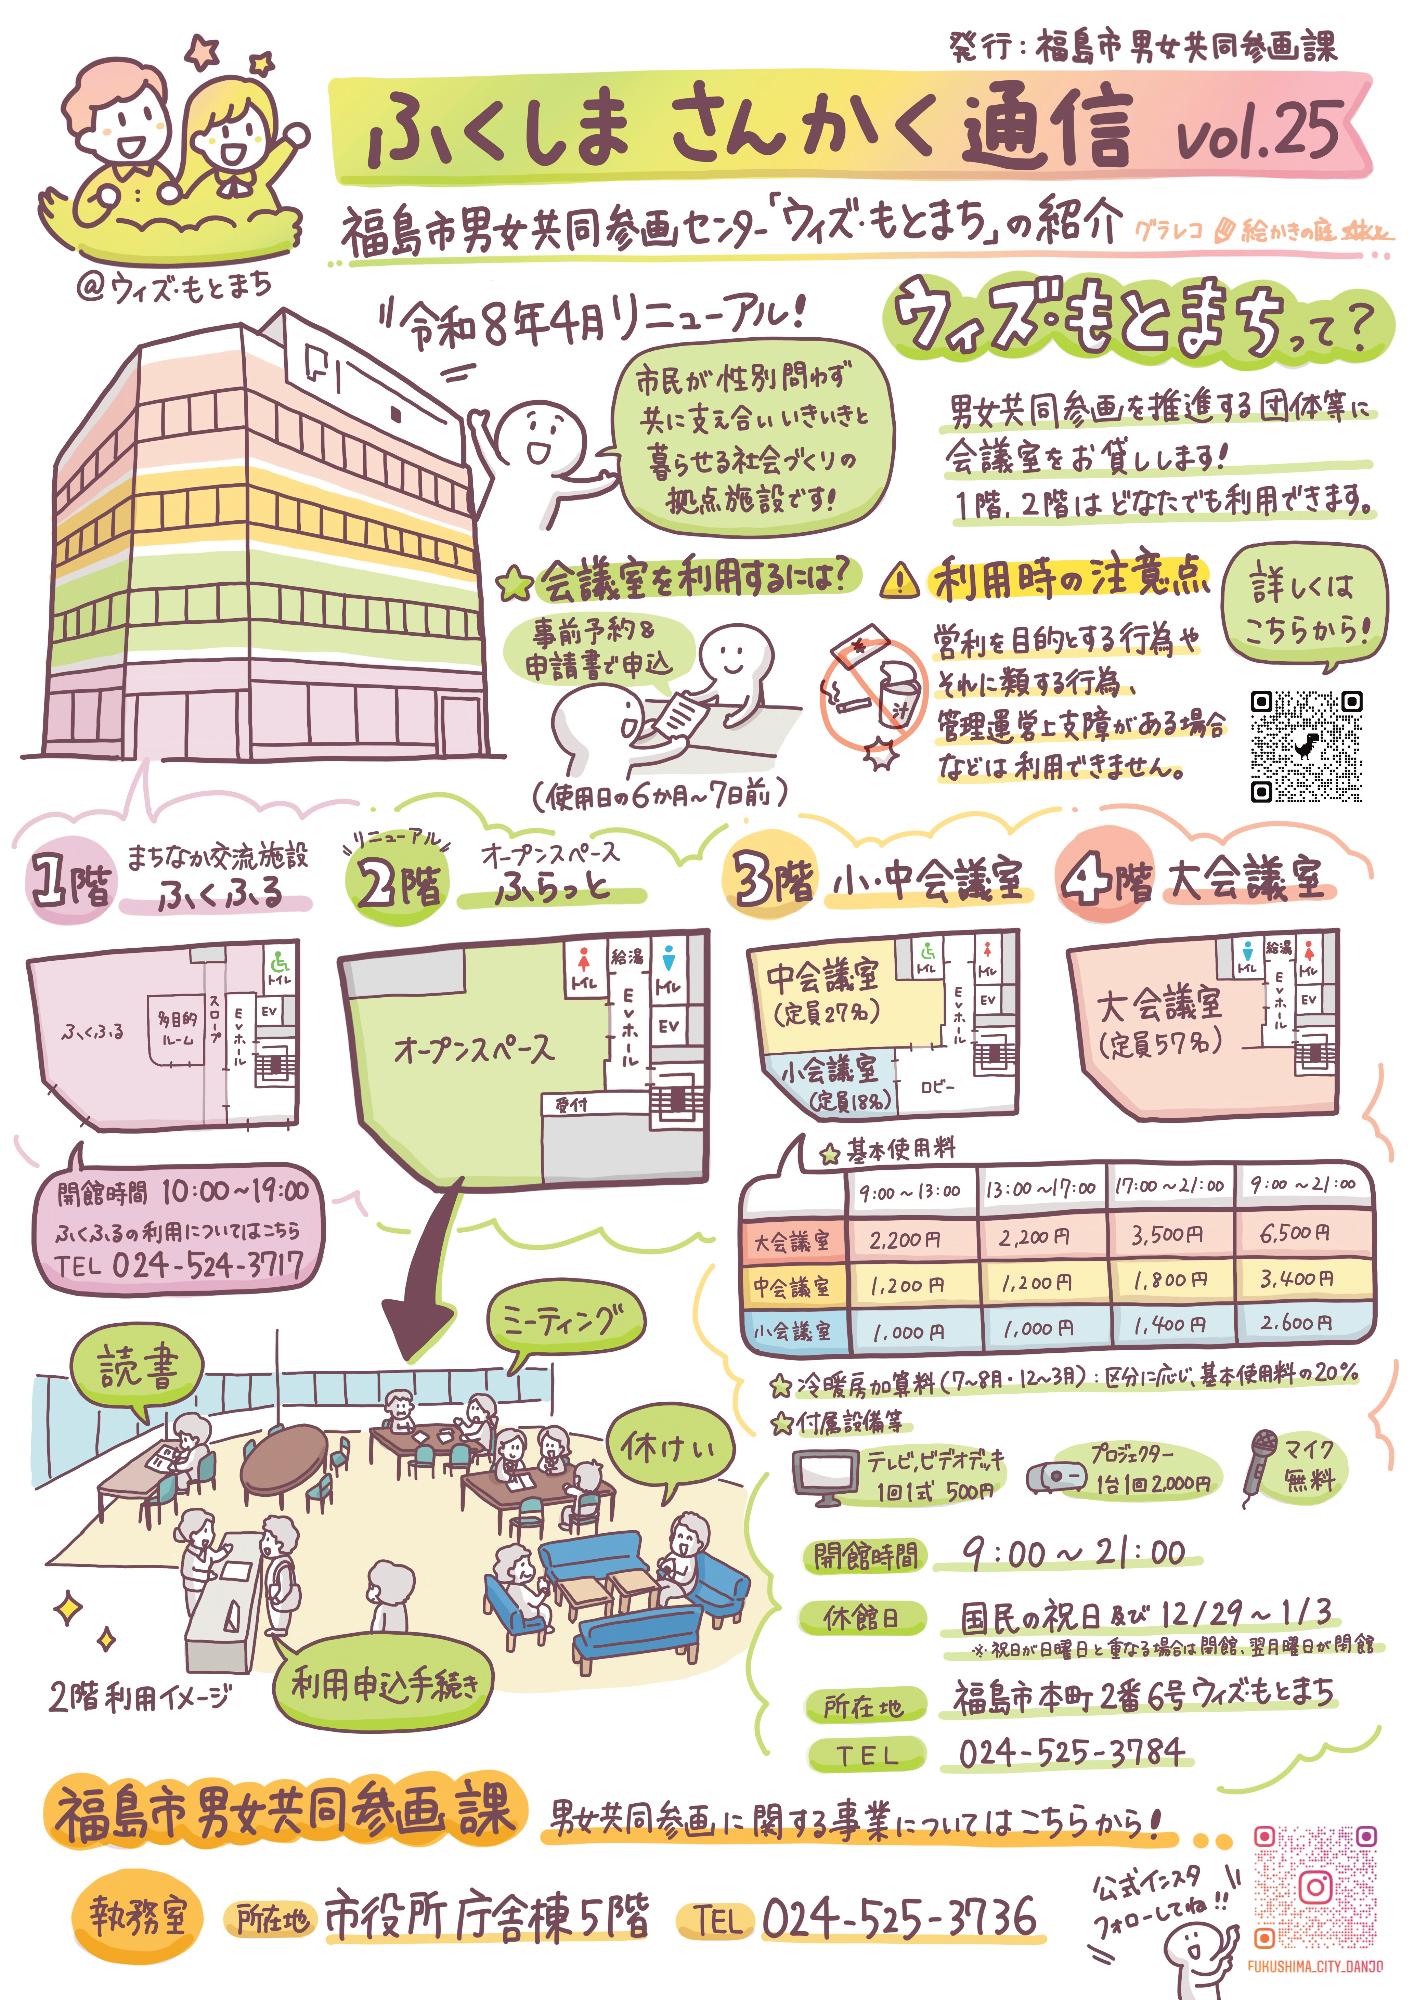 発行：福島市男女共同参画課
ふくしま さんかく通信 vol.25
福島市男女共同参画センター「ウィズ・もとまち」の紹介
グラレコ 絵かきの庭
@ウィズ・もとまち
令和8年4月リニューアル!
市民が性別問わず
共に支え合いいきいきと
暮らせる社会づくりの
拠点施設です!
ウィズ・もとまちって?
男女共同参画を推進する団体等に
会議室をお貸しします!
1階、2階はどなたでも利用できます。
会議室を利用するには?
事前予約&
申請書で申込
(使用日の6か月～7日前)
利用時の注意点
営利を目的とする行為や
それに類する行為、
管理運営上支障がある場合
などは利用できません。
汁
詳しくは
こちらから!
1階 まちなか交流施設
ふくふる
リニューアル
2階 オープンスペース
ふらっと
3階 小・中会議室
4階 大会議室
ふくふる
多目的
ルーム
スロープ
EVホール
トイレ
EV
オープンスペース
トイレ
給湯
トイレ
EVホール
EV
受付
中会議室
(定員27名)
小会議室
(定員18名)
トイレ
トイレ
EVホール
EV
ロビー
大会議室
(定員57名)
トイレ
給湯
トイレ
EVホール
EV
開館時間 10:00～19:00
ふくふるの利用についてはこちら
TEL 024-524-3717
基本使用料
9:00～13:00 13:00～17:00 17:00～21:00 9:00～21:00
大会議室 2,200円 2,200円 3,500円 6,500円
中会議室 1,200円 1,200円 1,800円 3,400円
小会議室 1,000円 1,000円 1,400円 2,600円
冷暖房加算料(7～8月・12～3月)：区分に応じ、基本使用料の20%
付属設備等
テレビ,ビデオデッキ
1回1式 500円
プロジェクター
1台1回2,000円
マイク
無料
開館時間 9:00～21:00
休館日 国民の祝日及び12/29～1/3
※祝日が日曜日と重なる場合は開館、翌月曜日が閉館
所在地 福島市本町2番6号ウィズ・もとまち
TEL 024-525-3784
読書
ミーティング
休けい
利用申込手続き
2階利用イメージ
福島市男女共同参画課 男女共同参画に関する事業についてはこちらから!
執務室 所在地 市役所庁舎棟5階 TEL 024-525-3736
公式インスタ
フォローしてね!!
FUKUSHIMA_CITY_DANJO